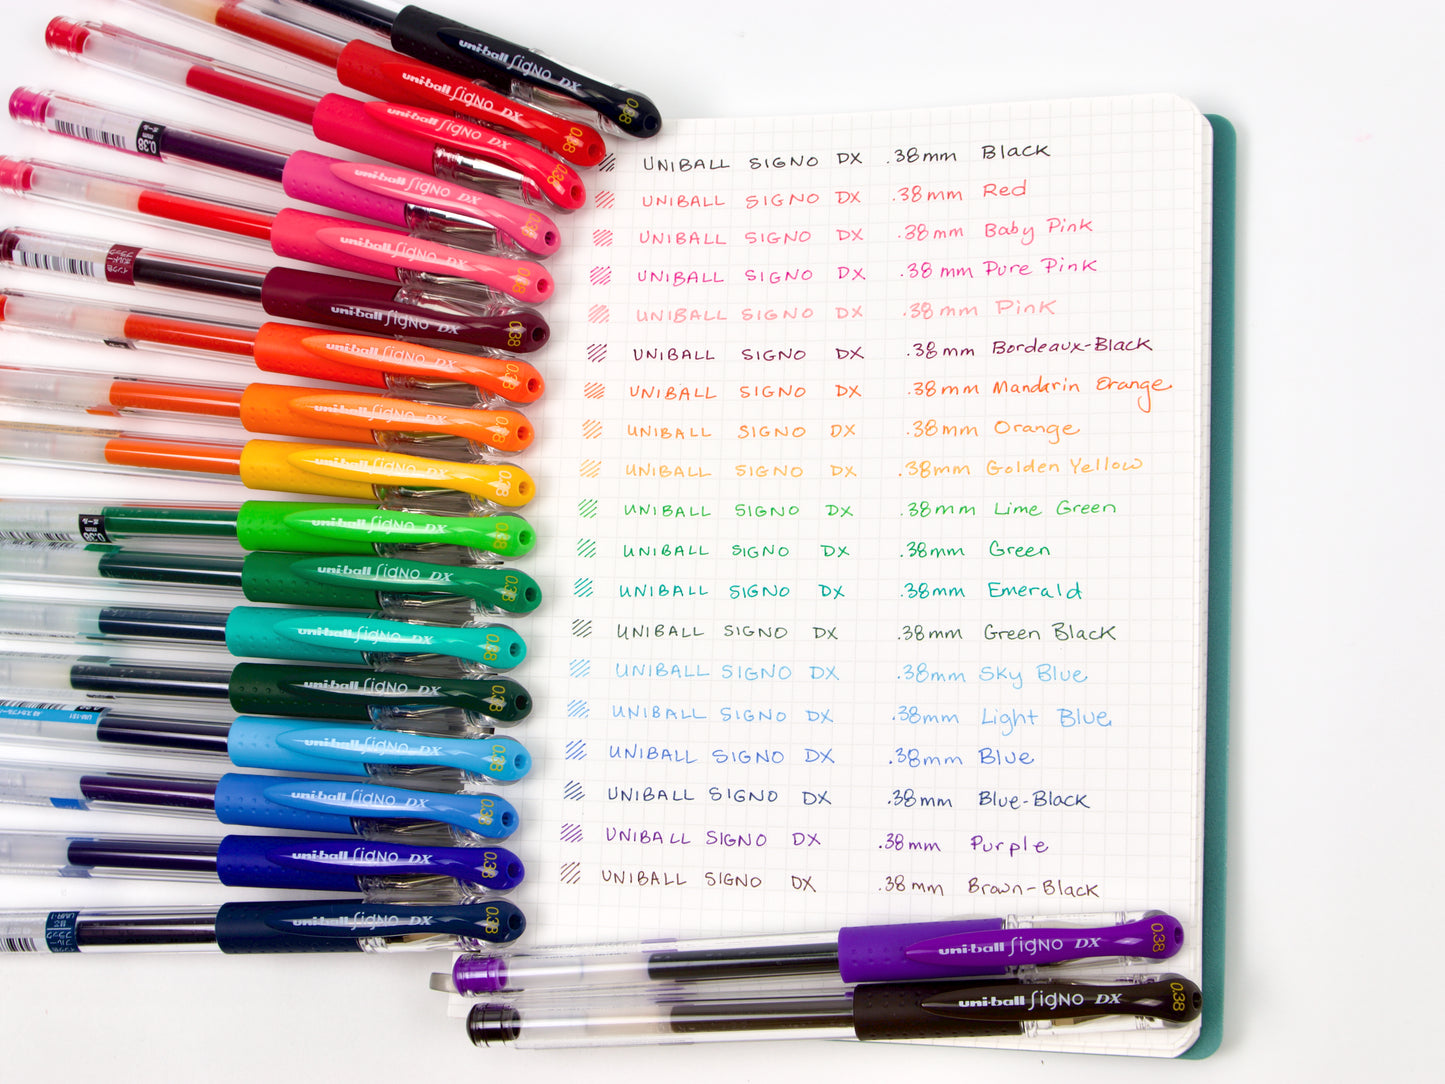 uni-ball Signo DX 0.38
uni-ball Signo DX 0.38
uni-ball Signo DX 0.38
0.38 mm ボール
uni-ball Signo DX 0.38
uni-ball Signo DX 0.38
uni-ball Signo DX 0.38
uni-ball Signo DX 0.38
uni-ball Signo DX 0.38
uni-ball Signo DX 0.38
0.38 ボール
uni-ball Signo DX 0.38
uni-ball Signo DX 0.38
uni-ball Signo DX 0.38
uni-ball Signo DX 0.38
UM-151
uni-ball Signo DX 0.38
uni-ball Signo DX 0.38
uni-ball Signo DX 0.38
uni-ball Signo DX 0.38
UNIBALL SIGNO DX .38mm Black
UNIBALL SIGNO DX .38mm Red
UNIBALL SIGNO DX .38mm Baby Pink
UNIBALL SIGNO DX .38mm Pure Pink
UNIBALL SIGNO DX .38mm Pink
UNIBALL SIGNO DX .38mm Bordeaux-Black
UNIBALL SIGNO DX .38mm Mandarin Orange
UNIBALL SIGNO DX .38mm Orange
UNIBALL SIGNO DX .38mm Golden Yellow
UNIBALL SIGNO DX .38mm Lime Green
UNIBALL SIGNO DX .38mm Green
UNIBALL SIGNO DX .38mm Emerald
UNIBALL SIGNO DX .38mm Green Black
UNIBALL SIGNO DX .38mm Sky Blue
UNIBALL SIGNO DX .38mm Light Blue
UNIBALL SIGNO DX .38mm Blue
UNIBALL SIGNO DX .38mm Blue-Black
UNIBALL SIGNO DX .38mm Purple
UNIBALL SIGNO DX .38mm Brown-Black
uni-ball Signo DX 0.38
uni-ball Signo DX 0.38